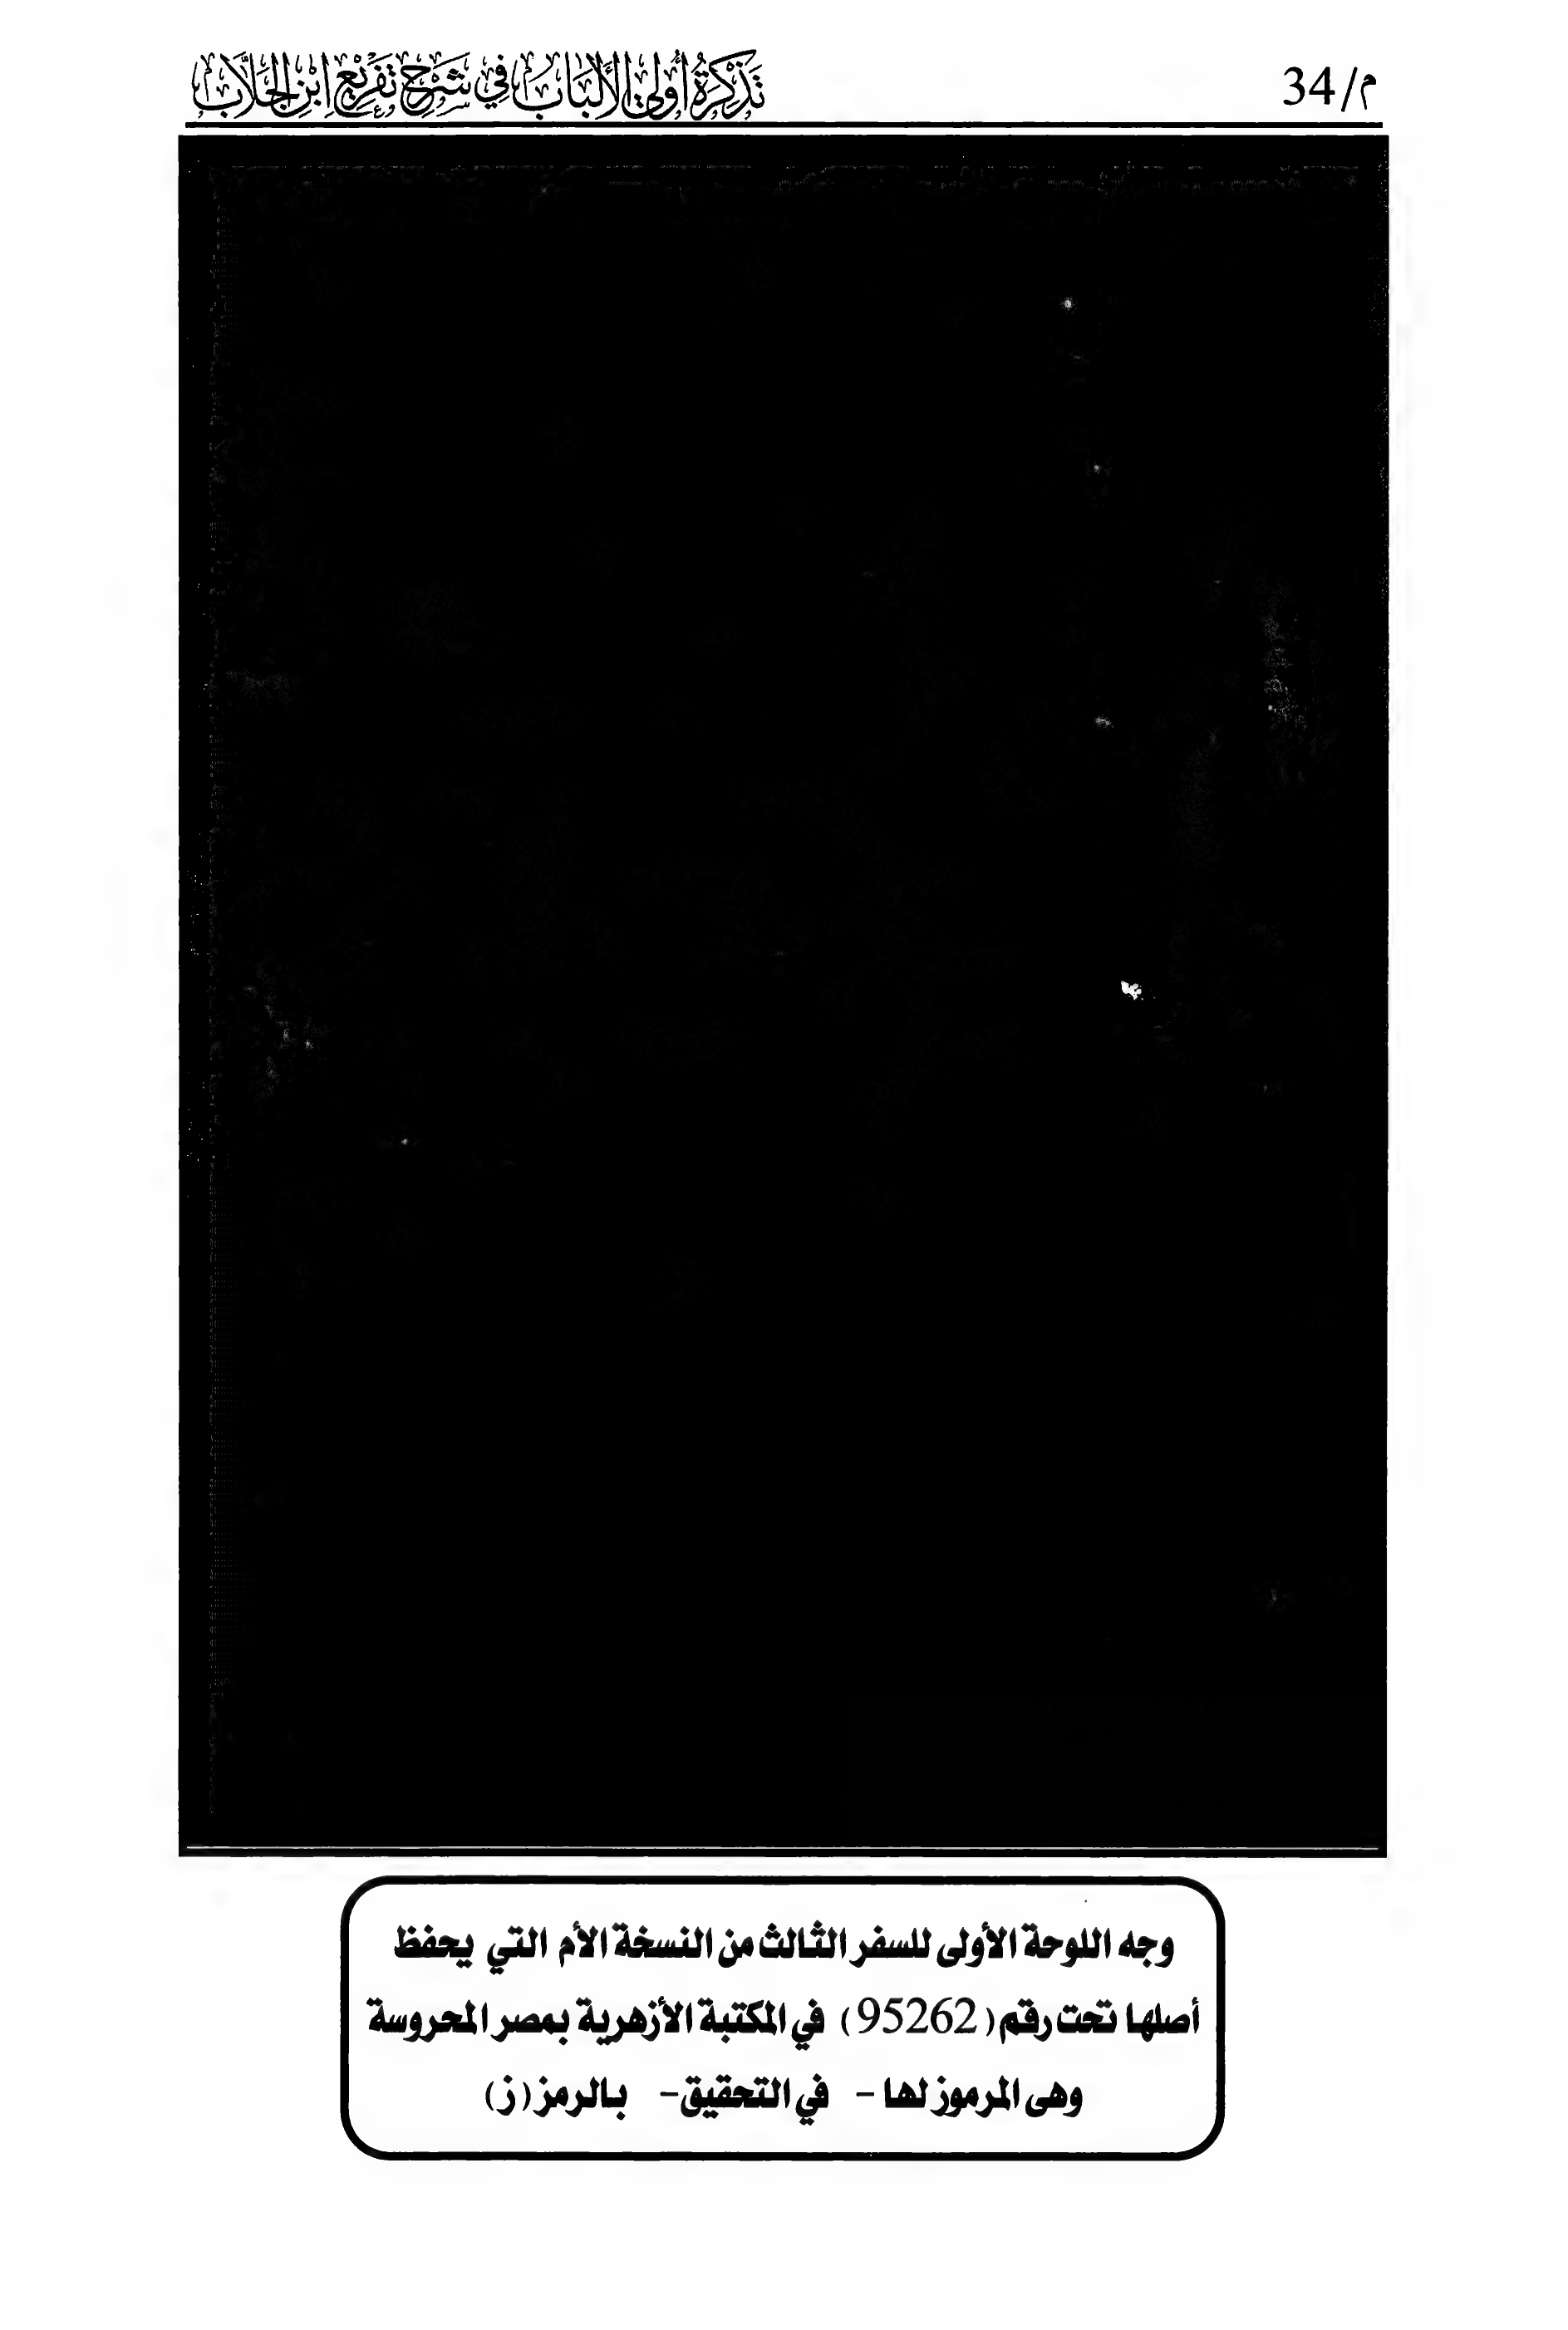 م/34
تَذْكِرَةُ أُولِي الأَلْبَابِ فِي شَرْحِ تَفْرِيْعِ ابْنِ الجَلَّابِ
وجه اللوحة الأولى للسفر الثالث من النسخة الأم التي يحفظ
أصلها تحت رقم (95262) في المكتبة الأزهرية بمصر المحروسة
وهى المرموز لها - في التحقيق- بالرمز (ز)